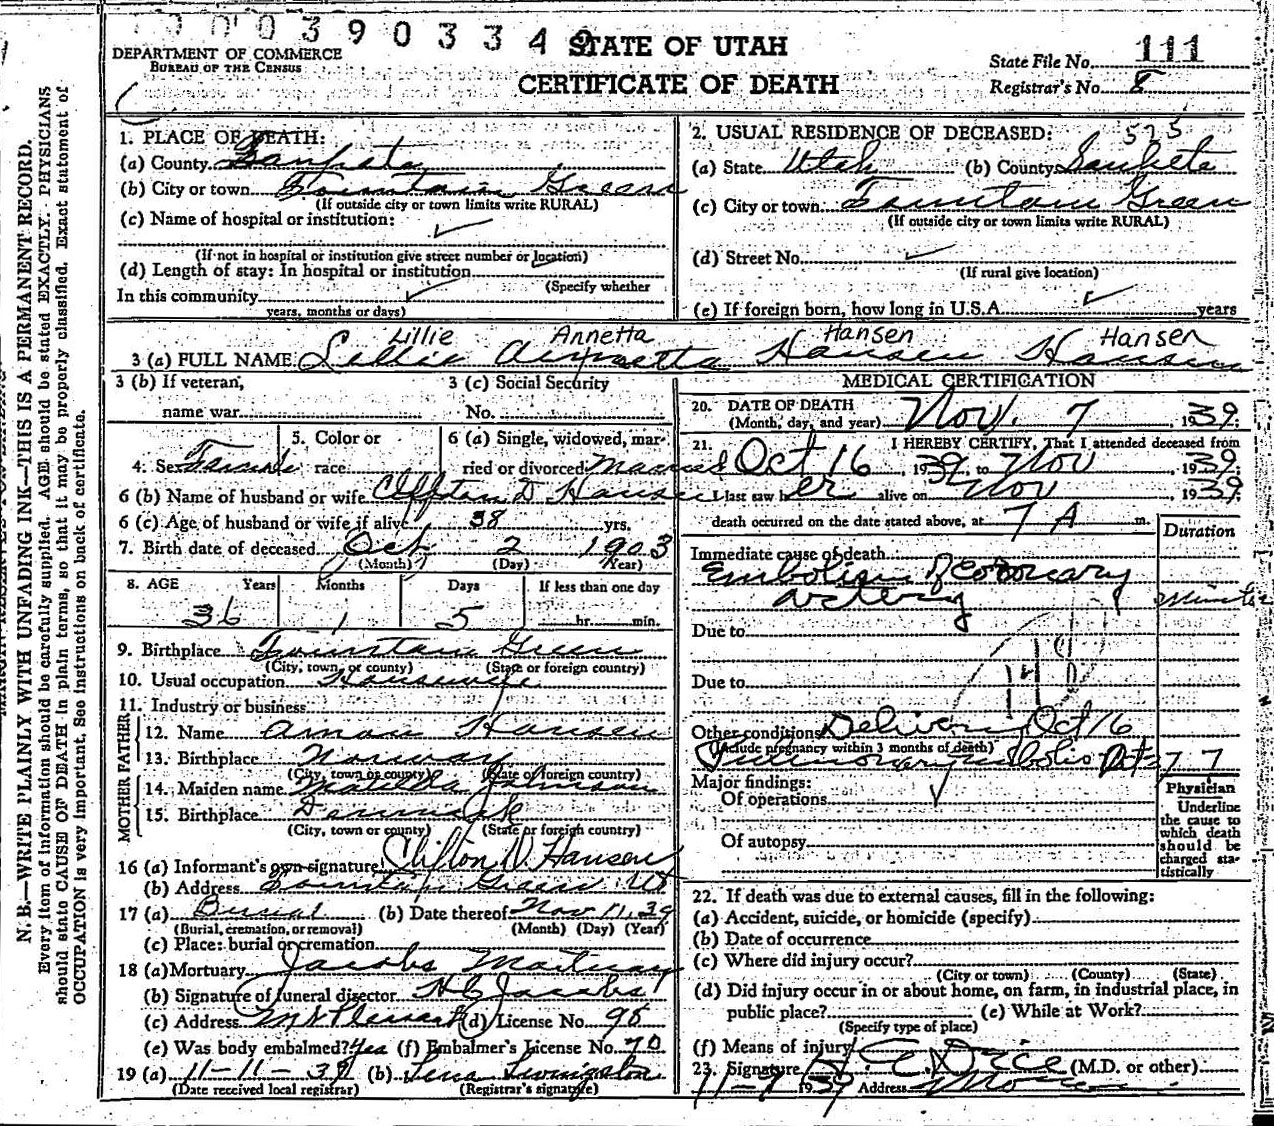 0 0 0 3 9 0 3 3 4
STATE OF UTAH
CERTIFICATE OF DEATH
DEPARTMENT OF COMMERCE
BUREAU OF THE CENSUS
State File No. 111
Registrar's No. 8
N. B.—WRITE PLAINLY WITH UNFADING INK—THIS IS A PERMANENT RECORD.
Every item of information should be carefully supplied. AGE should be stated EXACTLY. PHYSICIANS
should state CAUSE OF DEATH in plain terms, so that it may be properly classified. Exact statement of
OCCUPATION is very important. See instructions on back of certificate.
1. PLACE OF DEATH:
(a) County Sanpete
(b) City or town Fountain Green
(If outside city or town limits write RURAL)
(c) Name of hospital or institution: ✓
(If not in hospital or institution give street number or location)
(d) Length of stay: In hospital or institution
(Specify whether
In this community ✓
years, months or days)
2. USUAL RESIDENCE OF DECEASED: 575
(a) State Utah (b) County Sanpete
(c) City or town Fountain Green
(If outside city or town limits write RURAL)
(d) Street No. ✓
(If rural give location)
(e) If foreign born, how long in U.S.A. ✓ years
Lillie Annetta Hansen Hansen
3 (a) FULL NAME Lillie Annetta Hansen Hansen
3 (b) If veteran, 3 (c) Social Security
name war No.
4. Sex Female 5. Color or race 6 (a) Single, widowed, married or divorced Married
6 (b) Name of husband or wife Clifton D Hansen
6 (c) Age of husband or wife if alive 38 yrs.
7. Birth date of deceased Oct 2 1903
(Month) (Day) (Year)
8. AGE Years Months Days If less than one day
36 1 5 hr. min.
9. Birthplace Fountain Green
(City, town, or county) (State or foreign country)
10. Usual occupation Housewife
11. Industry or business
FATHER
12. Name Hansen
13. Birthplace Norway
(City, town or county) (State or foreign country)
MOTHER
14. Maiden name Matilda Johnson
15. Birthplace Denmark
(City, town or county) (State or foreign country)
16 (a) Informant's own signature Clifton D. Hansen
(b) Address Fountain Green Ut
17 (a) Burial (b) Date thereof Nov 11, 39
(Burial, cremation, or removal) (Month) (Day) (Year)
(c) Place: burial or cremation
18 (a) Mortuary Jacobs Mortuary
(b) Signature of funeral director H C Jacobs
(c) Address Mt Pleasant (d) License No. 98
(e) Was body embalmed? Yes (f) Embalmer's License No. 70
19 (a) 11-11-39 (b) Lena Livingston
(Date received local registrar) (Registrar's signature)
MEDICAL CERTIFICATION
20. DATE OF DEATH
(Month, day, and year) Nov. 7, 1939.
21. I HEREBY CERTIFY, That I attended deceased from
Oct 16, 1939, to Nov, 1939;
I last saw her alive on Nov, 1939;
death occurred on the date stated above, at 7 A m.
Duration
Immediate cause of death
Embolism of Coronary
artery
Due to
Due to
Other conditions Delivery Oct 16
(Include pregnancy within 3 months of death)
Pulmonary
Major findings:
Of operations ✓
Of autopsy
Physician
Underline
the cause to
which death
should be
charged sta-
tistically
22. If death was due to external causes, fill in the following:
(a) Accident, suicide, or homicide (specify)
(b) Date of occurrence
(c) Where did injury occur?
(City or town) (County) (State)
(d) Did injury occur in or about home, on farm, in industrial place, in
public place? (e) While at Work?
(Specify type of place)
(f) Means of injury
23. Signature (M.D. or other)
11-9 1939 Address